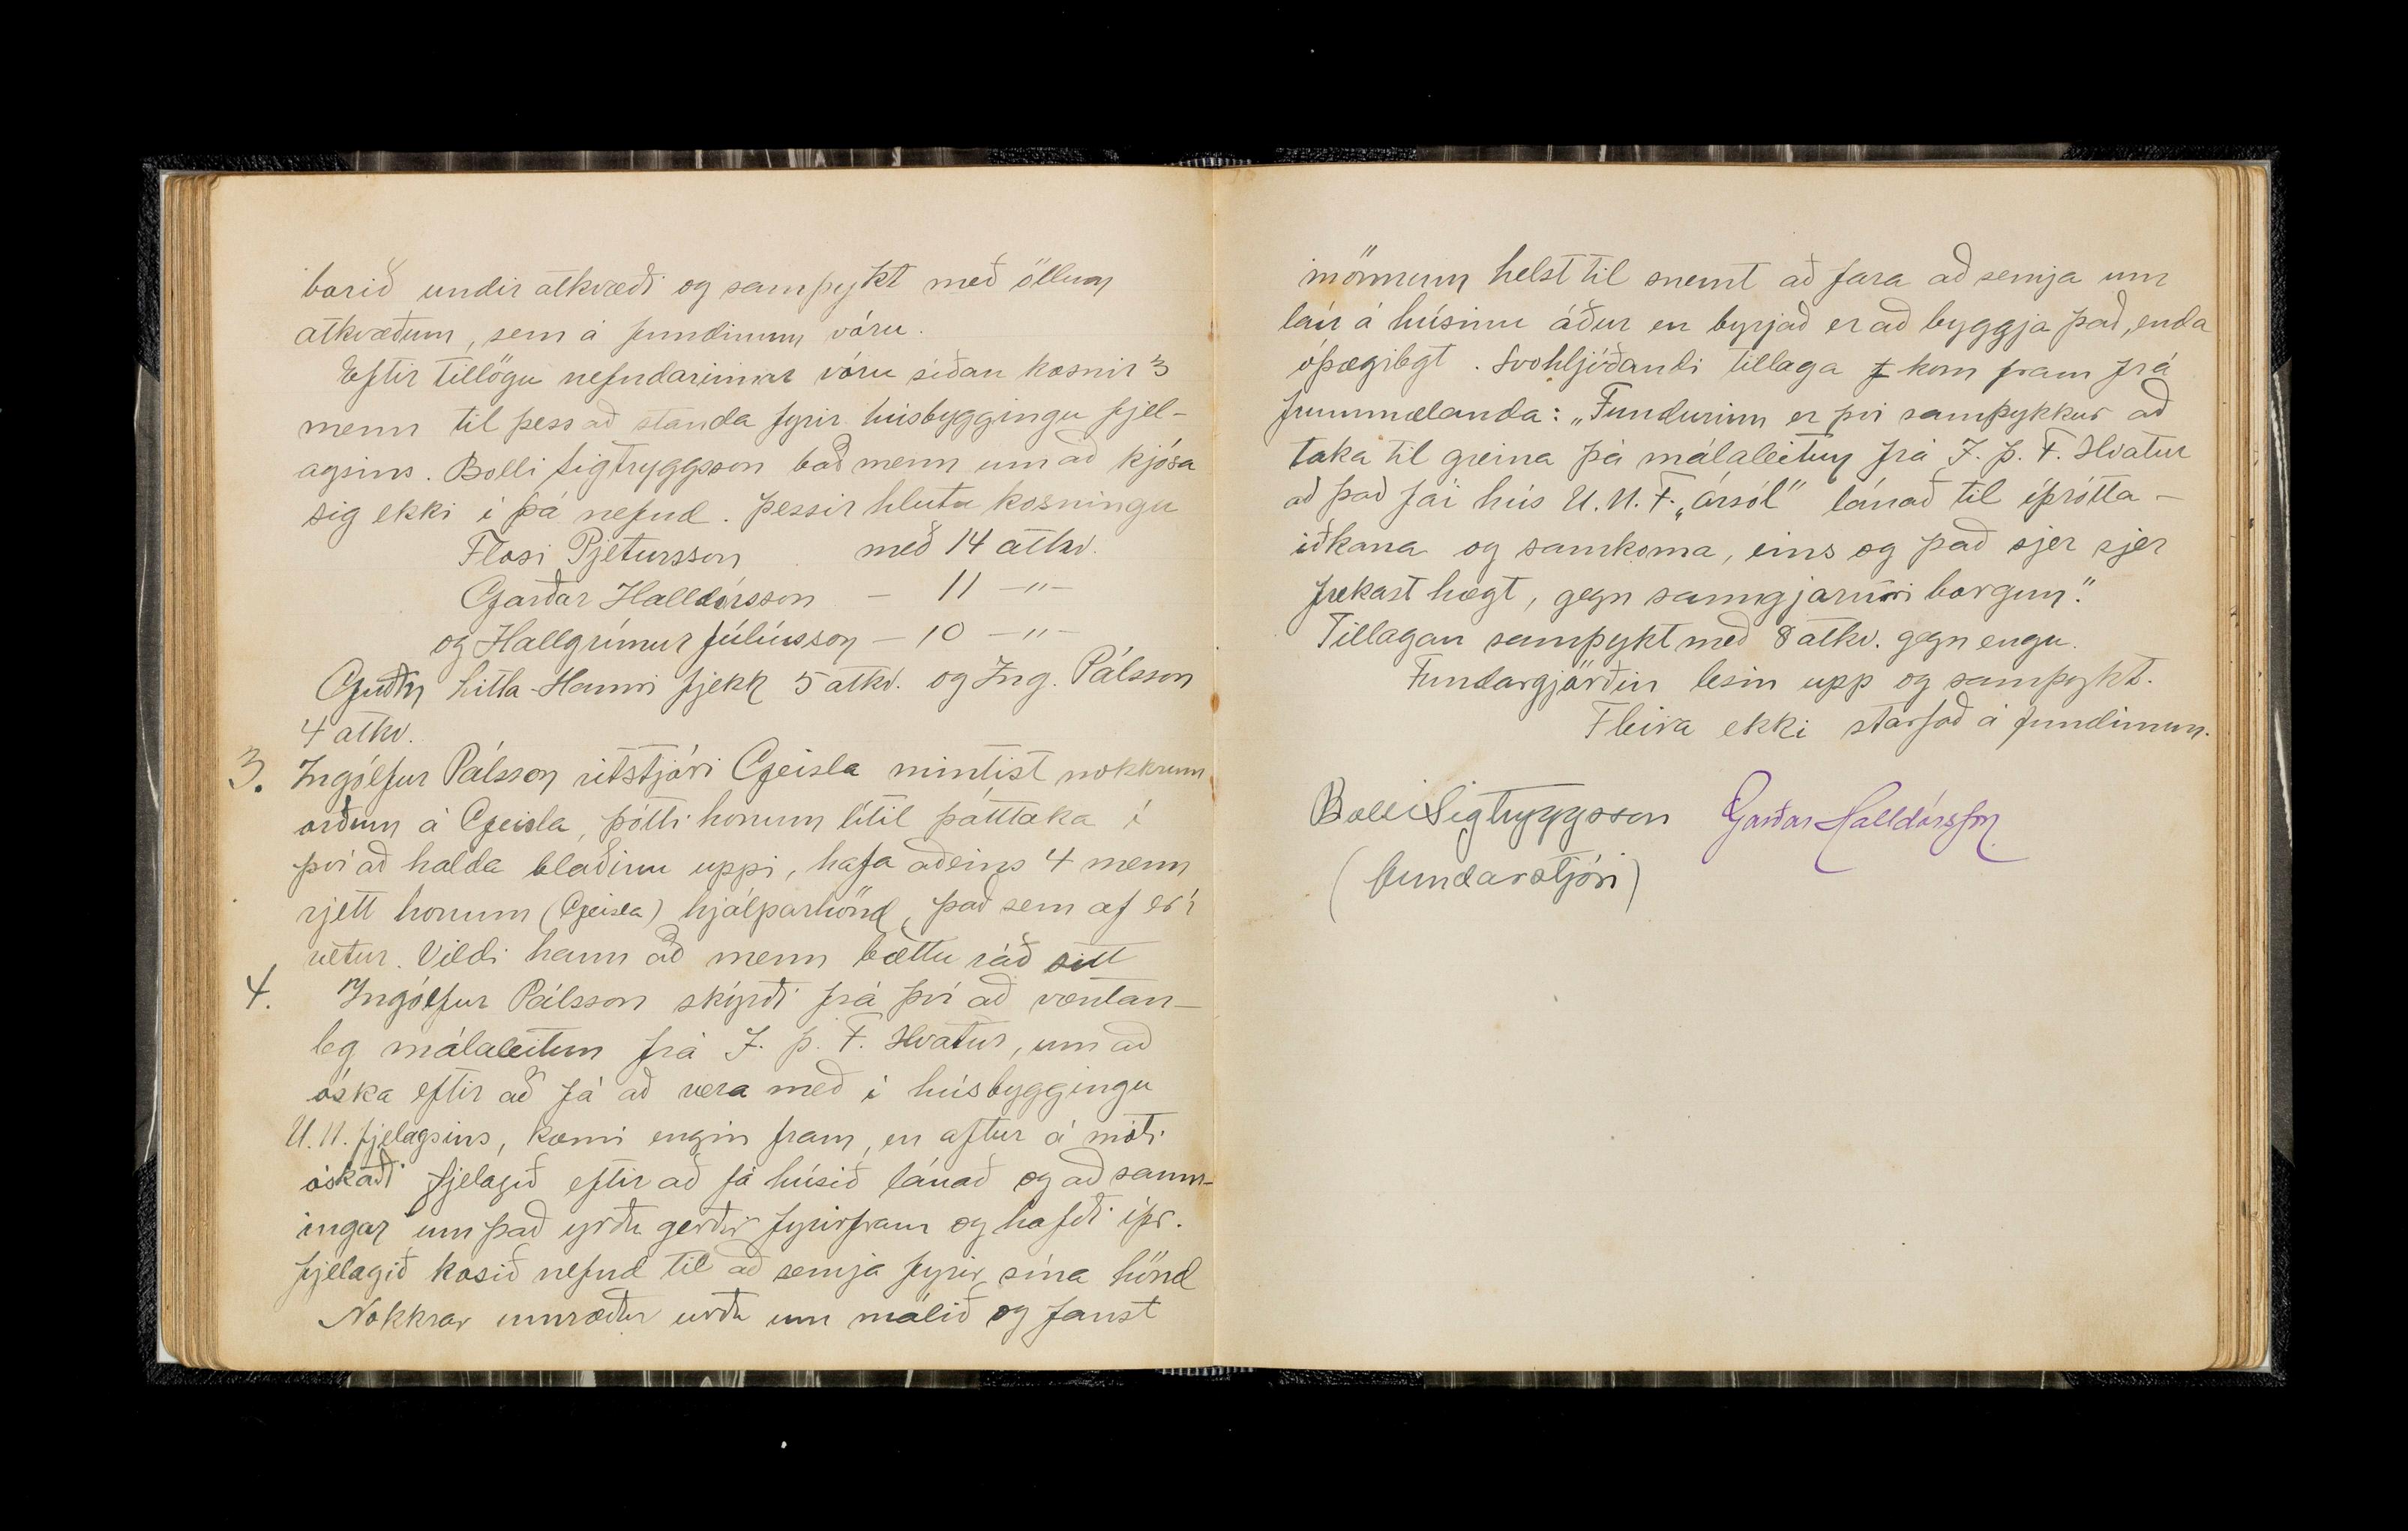 borið undir atkvæði og samþykt með öllum
atkvæðum, sem á fundinum vóru.
Eftir tillögu nefndarinnar vóru síðan kosnir 3
menn til þess að standa fyrir húsbyggingu fjel-
agsins. Bolli Sigtryggsson bað menn um að kjósa
sig ekki í þá nefnd. Þessir hlutu kosningu
Flosi Pjetursson með 14 atkv.
Garðar Halldórsson – 11 –"–
og Hallgrímur Júlíusson – 10 –"–
Litla-Hamri fjekk 5 atkv. og Ing. Pálsson
4 atkv.
3. Ingólfur Pálsson ritstjóri Geisla mintist nokkrum
orðum á Geisla, þótti honum lítil þátttaka í
því að halda blaðinu uppi, hafa aðeins 4 menn
rjett honum (Geisla) hjálparhönd, það sem af er í
vetur. Vildi hann að menn bættu ráð sitt
4. Ingólfur Pálsson skýrði frá því að væntan-
leg málaleitun frá I. þ. F. Hvatur, um að
óska eftir að fá að vera með í húsbyggingu
U.M. fjelagsins, kæmi engin fram, en aftur á móti
óskaði fjelagið eftir að fá húsið lánað og að samn-
ingar um það yrðu gerðir fyrirfram og hafði íþr.
fjelagið kosið nefnd til að semja fyrir sína hönd
Nokkrar umræður urðu um málið og fanst
mönnum helst til snemt að fara að semja um
lán á húsinu áður en byrjað er að byggja það, enda
óþægilegt. Svohljóðandi tillaga kom fram frá
frummælanda: „Fundurinn er því samþykkur að
taka til greina þá málaleitun frá I. þ. F. Hvatur
að það fái hús U.M.F. „ársól" lánað til íþrótta-
iðkana og samkoma, eins og það sjer sjer
frekast hægt, gegn sanngjarnri borgun."
Tillagan samþykt með 8 atkv. gegn engu.
Fundargjörðin lesin upp og samþykt.
Fleira ekki starfað á fundinum.
Bolli Sigtryggsson Garðar Halldórsson
(fundarstjóri)